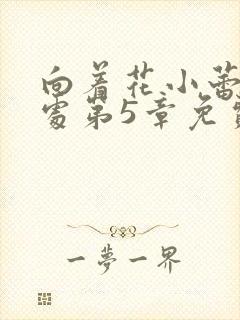 向着花小蕾
处第5章免
一梦一界